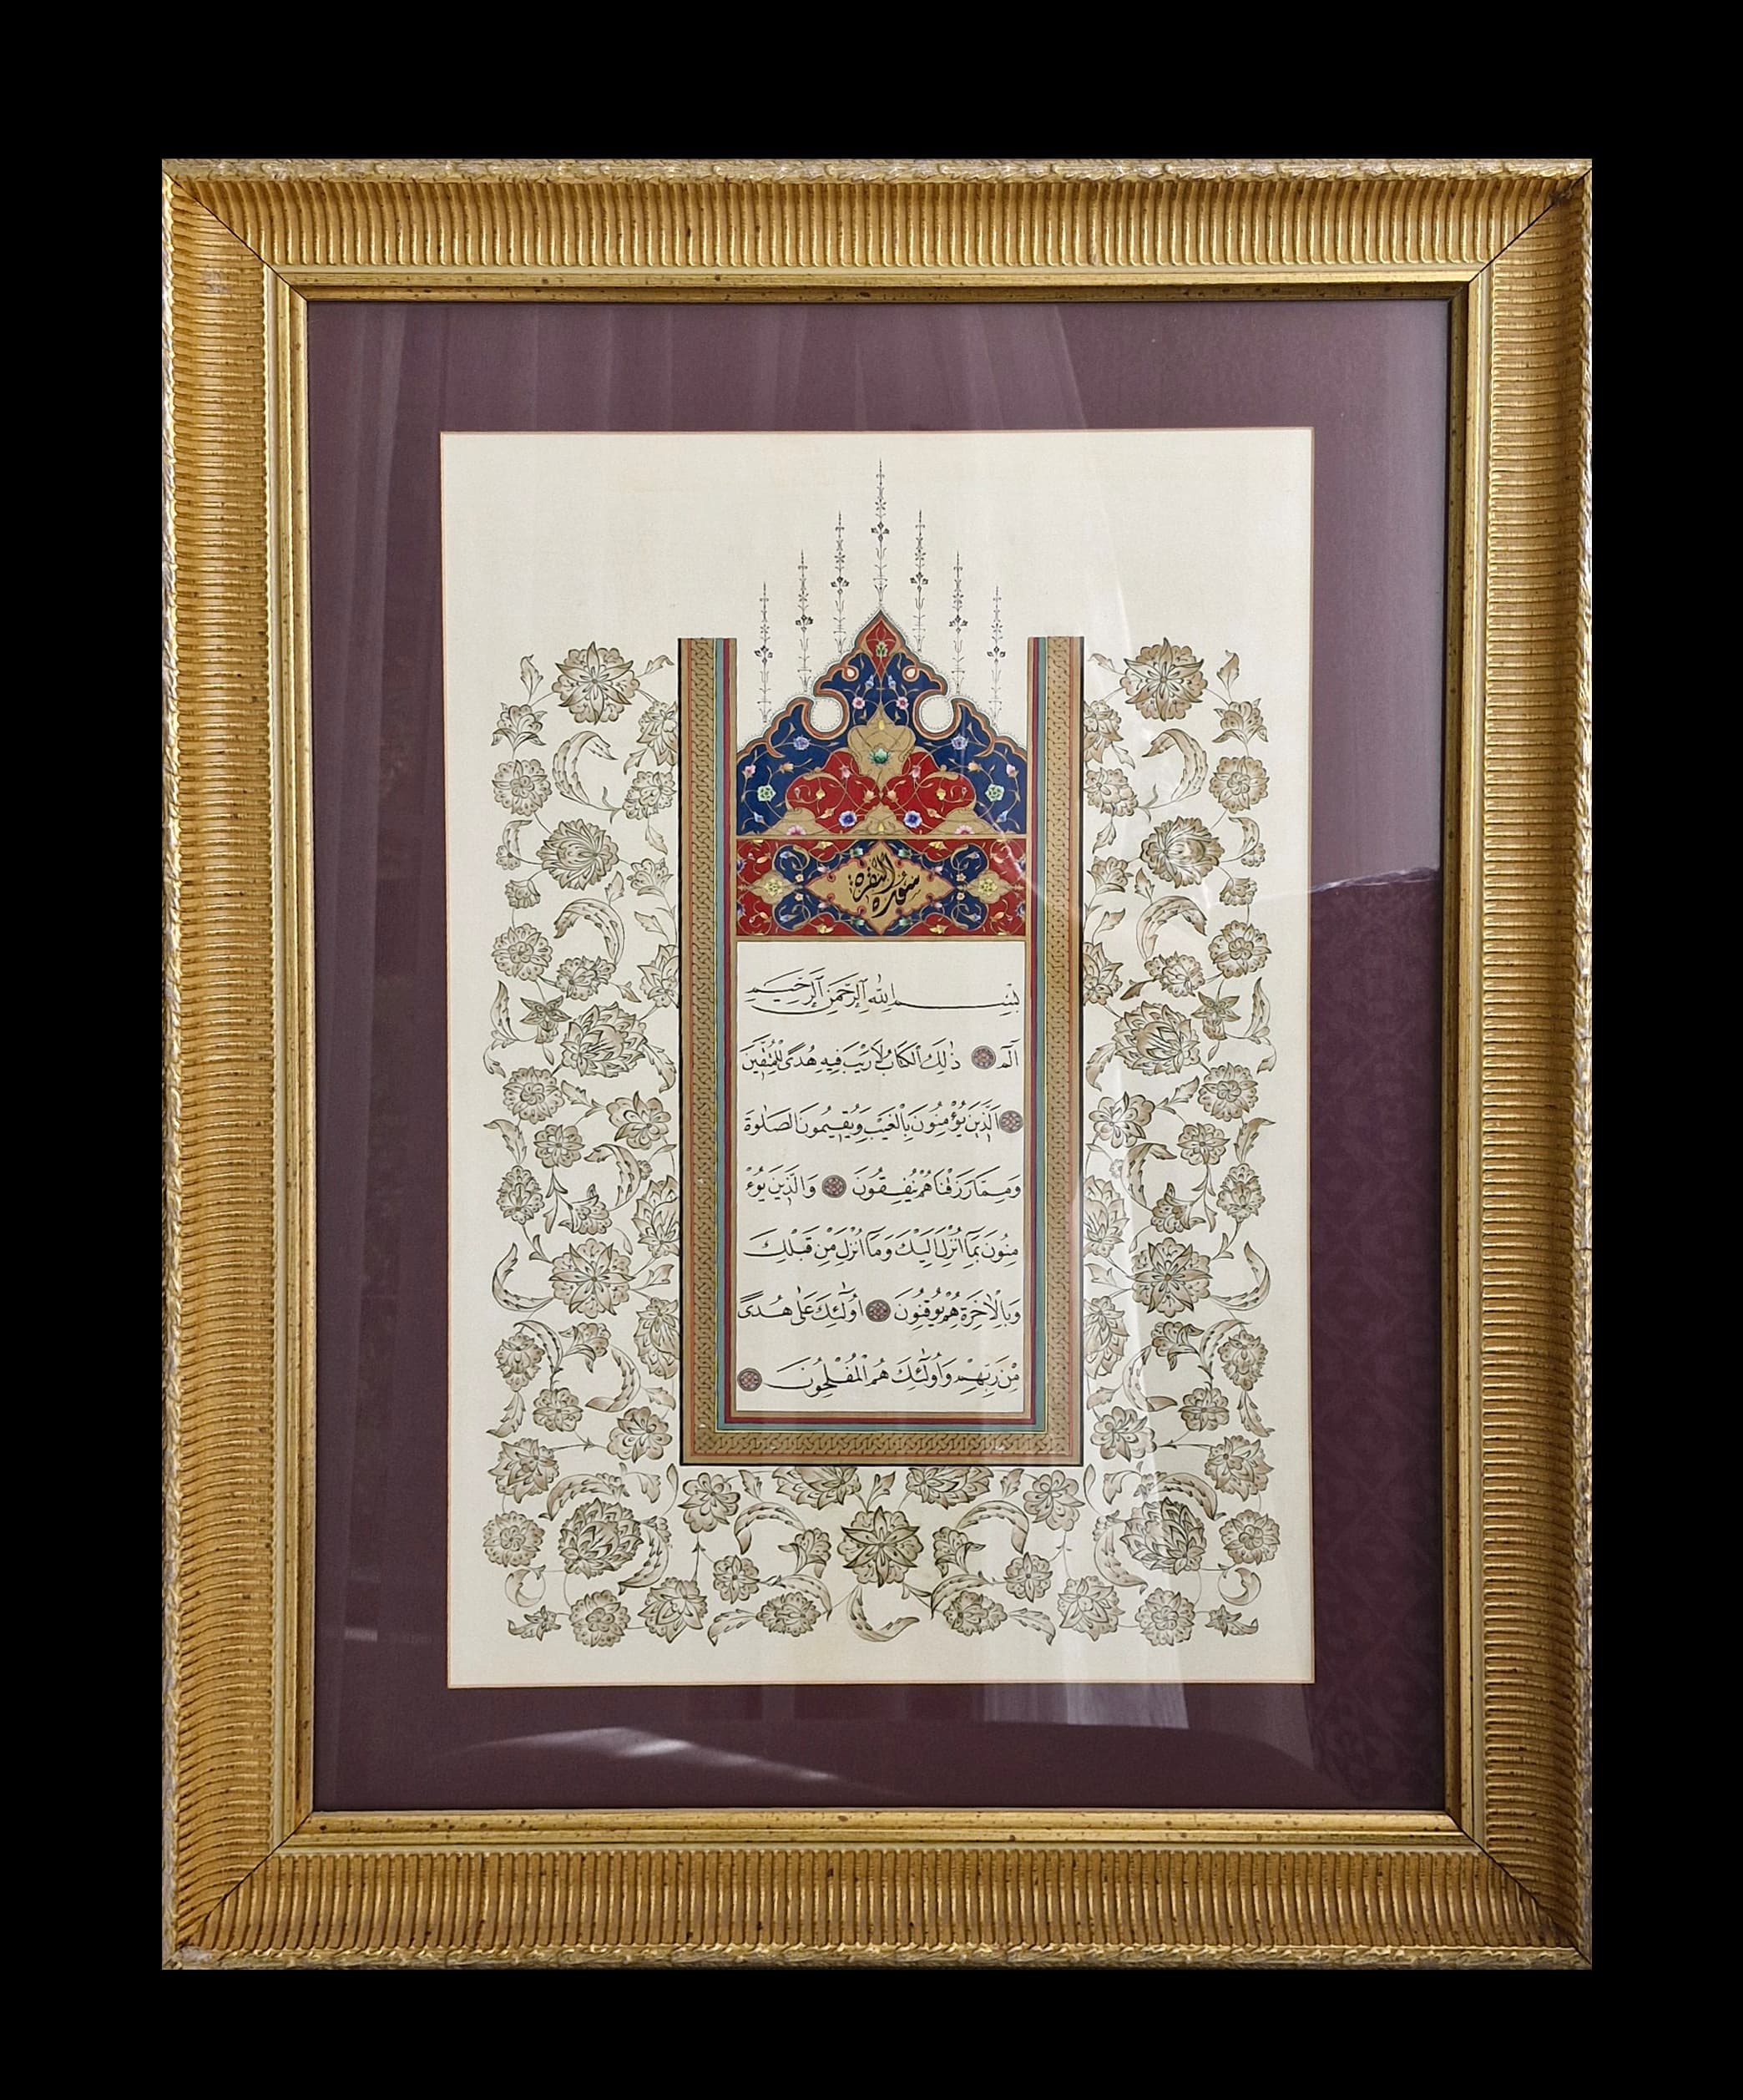 سورة البقرة
بِسْمِ اللهِ الرَّحْمٰنِ الرَّحِيمِ
الٓمٓ ذٰلِكَ الْكِتَابُ لَا رَيْبَ فِيهِ هُدًى لِلْمُتَّقِينَ
اَلَّذِينَ يُؤْمِنُونَ بِالْغَيْبِ وَيُقِيمُونَ الصَّلٰوةَ
وَمِمَّا رَزَقْنَاهُمْ يُنْفِقُونَ وَالَّذِينَ يُؤْ
مِنُونَ بِمَٓا اُنْزِلَ اِلَيْكَ وَمَٓا اُنْزِلَ مِنْ قَبْلِكَ
وَبِالْاٰخِرَةِ هُمْ يُوقِنُونَ اُولٰٓئِكَ عَلٰى هُدًى
مِنْ رَبِّهِمْ وَاُولٰٓئِكَ هُمُ الْمُفْلِحُونَ